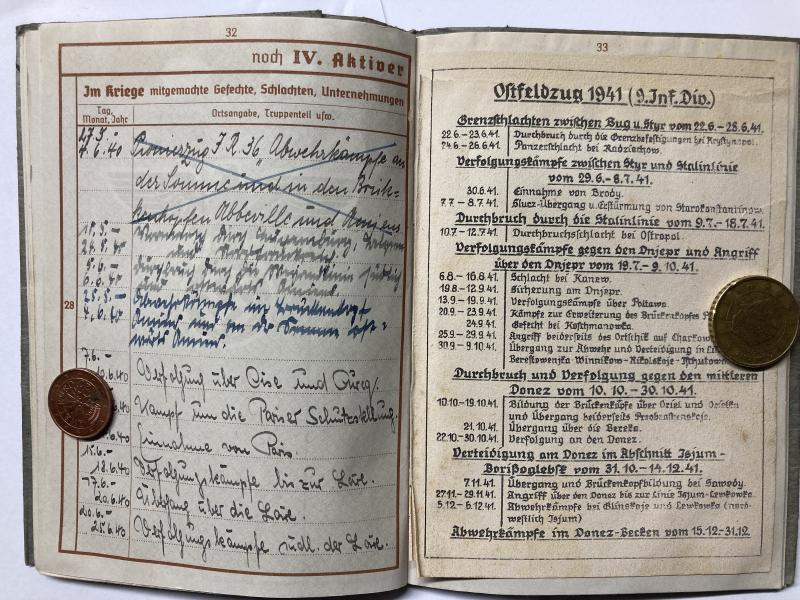 32
noch IV. Aktiver
Im Kriege mitgemachte Gefechte, Schlachten, Unternehmungen
Tag, Monat, Jahr
Ortsangabe, Truppenteil usw.
27.5.-
4.6.40 Pionierzug J.R. 36 "Abwehrkämpfe an
der Somme und in den Brük-
kenköpfen Abbeville und Amiens
Vormarsch durch Luxemburg,
28
25.5.- Abwehrkämpfe im Brückenkopf
4.6.40 Amiens und an der Somme
7.6.-
6.40 Verfolgung über Oise und Ourcq.
6.40 Kampf um die Pariser Schutzstellung.
6.40 Einnahme von Paris.
15.6.-
18.6.40 Verfolgungskämpfe bis zur Loire.
17.6.-
20.6.40 Übergang über die Loire.
20.6.-
25.6.40 Verfolgungskämpfe südl. der Loire.
33
Ostfeldzug 1941 (9.Inf.Div.)
Grenzschlachten zwischen Bug u.Styr vom 22.6.-28.6.41.
22.6.-23.6.41. Durchbruch durch die Grenzbefestigungen bei Krystynopol.
24.6.-26.6.41. Panzerschlacht bei Radziechow.
Verfolgungskämpfe zwischen Styr und Stalinlinie
vom 29.6.-8.7.41.
30.6.41. Einnahme von Brody.
7.7.-8.7.41. Slucz-Übergang u.Erstürmung von Starokonstantinow.
Durchbruch durch die Stalinlinie vom 9.7.-18.7.41.
10.7.-12.7.41. Durchbruchsschlacht bei Ostropol.
Verfolgungskämpfe gegen den Dnjepr und Angriff
über den Dnjepr vom 19.7.-9.10.41.
6.8.-16.8.41. Schlacht bei Kanew.
19.8.-12.9.41. Sicherung am Dnjepr.
13.9.-19.9.41. Verfolgungskämpfe über Poltawa.
20.9.-23.9.41. Kämpfe zur Erweiterung des Brückenkopfes
24.9.41. Gefecht bei Koschmanowka.
25.9.-29.9.41. Angriff beiderseits des Ortschik auf Charkow
30.9.-9.10.41. Übergang zur Abwehr und Verteidigung in
Berestowenka Winnikow-Nikolskoje-
Durchbruch und Verfolgung gegen den mittleren
Donez vom 10.10.-30.10.41.
10.10.-19.10.41. Bildung der Brückenköpfe über Orsel und Orselka
und Übergang beiderseits Preobrashenskoje.
21.10.41. Übergang über die Bereka.
22.10.-30.10.41. Verfolgung an den Donez.
Verteidigung am Donez im Abschnitt Isjum-
Borißoglebsk vom 31.10.-14.12.41.
7.11.41. Übergang und Brückenkopfbildung bei Sawody.
27.11.-29.11.41. Angriff über den Donez bis zur Linie Isjum-Lewkowka.
5.12.-6.12.41. Abwehrkämpfe bei Glinskoje und Lewkowka (nord-
westlich Isjum)
Abwehrkämpfe im Donez-Becken vom 15.12.-31.12.